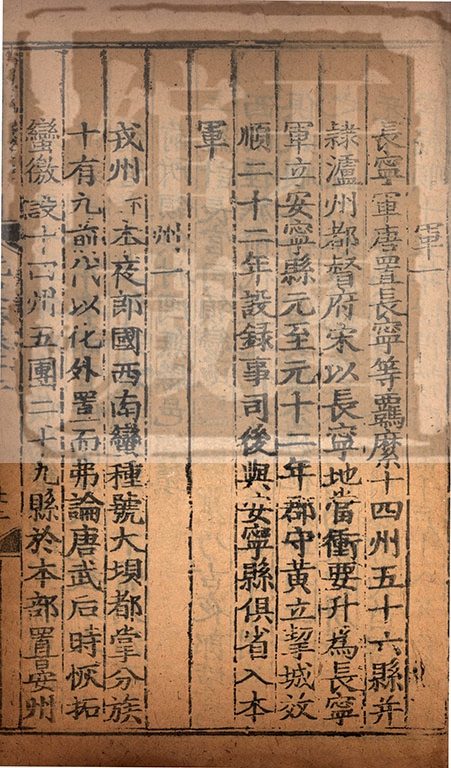 軍一
長寧軍唐置長寧等羈縻十四州五十六縣并
隸瀘州都督府宋以長寧地當衝要升爲長寧
軍立安寧縣元至元十二年郡守黃立挈城效
順二十二年設録事司後與安寧縣俱省入本
軍
州一
戎州下本夜郎國西南蠻種號大壩都掌分族
十有九前代以化外置而弗論唐武后時恢拓
蠻徼設十四州五團二十九縣於本部置晏州